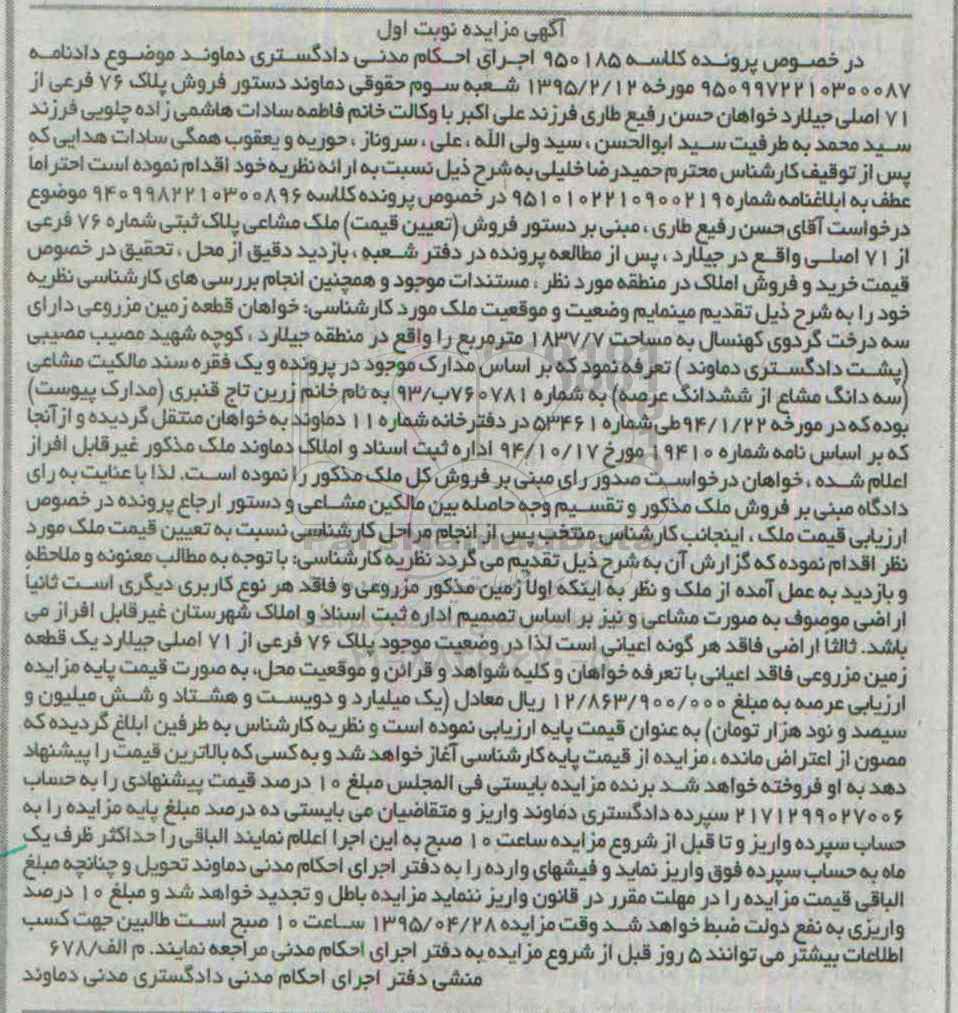 آگهی مزایده نوبت اول
در خصوص پرونده کلاسه ۹۵۰۱۸۵ اجرای احکام مدنی دادگستری دماوند موضوع دادنامه
۹۵۰۹۹۷۲۲۱۰۳۰۰۰۸۷ مورخه ۱۳۹۵/۲/۱۲ شعبه سوم حقوقی دماوند دستور فروش پلاک ۷۶ فرعی از
۷۱ اصلی جیلارد خواهان حسن رفیع طاری فرزند علی اکبر با وکالت خانم فاطمه سادات هاشمی زاده چلویی فرزند
سید محمد به طرفیت سید ابوالحسن ، سید ولی الله ، علی ، سروناز ، حوریه و یعقوب همگی سادات هدایی که
پس از توقیف کارشناس محترم حمیدرضا خلیلی به شرح ذیل نسبت به ارائه نظریه خود اقدام نموده است احتراما
عطف به ابلاغنامه شماره ۹۵۱۰۱۰۲۲۱۰۹۰۰۲۱۹ در خصوص پرونده کلاسه ۹۴۰۹۹۸۲۲۱۰۳۰۰۸۹۶ موضوع
درخواست آقای حسن رفیع طاری ، مبنی بر دستور فروش (تعیین قیمت) ملک مشاعی پلاک ثبتی شماره ۷۶ فرعی
از ۷۱ اصلی واقع در جیلارد ، پس از مطالعه پرونده در دفتر شعبه ، بازدید دقیق از محل ، تحقیق در خصوص
قیمت خرید و فروش املاک در منطقه مورد نظر ، مستندات موجود و همچنین انجام بررسی های کارشناسی نظریه
خود را به شرح ذیل تقدیم مینمایم وضعیت و موقعیت ملک مورد کارشناسی: خواهان قطعه زمین مزروعی دارای
سه درخت گردوی کهنسال به مساحت ۱۸۳۷/۷ مترمربع را واقع در منطقه جیلارد ، کوچه شهید مصیب مصیبی
(پشت دادگستری دماوند ) تعرفه نمود که بر اساس مدارک موجود در پرونده و یک فقره سند مالکیت مشاعی
(سه دانگ مشاع از ششدانگ عرصه) به شماره ۷۶۰۷۸۱ب/۹۳ به نام خانم زرین تاج قنبری (مدارک پیوست)
بوده که در مورخه ۹۴/۱/۲۲ طی شماره ۵۳۴۶۱ در دفترخانه شماره ۱۱ دماوند به خواهان منتقل گردیده و از آنجا
که بر اساس نامه شماره ۱۹۴۱۰ مورخ ۹۴/۱۰/۱۷ اداره ثبت اسناد و املاک دماوند ملک مذکور غیرقابل افراز
اعلام شده ، خواهان درخواست صدور رای مبنی بر فروش کل ملک مذکور را نموده است. لذا با عنایت به رای
دادگاه مبنی بر فروش ملک مذکور و تقسیم وجه حاصله بین مالکین مشاعی و دستور ارجاع پرونده در خصوص
ارزیابی قیمت ملک ، اینجانب کارشناس منتخب پس از انجام مراحل کارشناسی نسبت به تعیین قیمت ملک مورد
نظر اقدام نموده که گزارش آن به شرح ذیل تقدیم می گردد نظریه کارشناسی: با توجه به مطالب معنونه و ملاحظه
و بازدید به عمل آمده از ملک و نظر به اینکه اولاً زمین مذکور مزروعی و فاقد هر نوع کاربری دیگری است ثانیا
اراضی موصوف به صورت مشاعی و نیز بر اساس تصمیم اداره ثبت اسناد و املاک شهرستان غیرقابل افراز می
باشد. ثالثا اراضی فاقد هر گونه اعیانی است لذا در وضعیت موجود پلاک ۷۶ فرعی از ۷۱ اصلی جیلارد یک قطعه
زمین مزروعی فاقد اعیانی با تعرفه خواهان و کلیه شواهد و قرائن و موقعیت محل، به صورت قیمت پایه مزایده
ارزیابی عرصه به مبلغ ۱۲/۸۶۳/۹۰۰/۰۰۰ ریال معادل (یک میلیارد و دویست و هشتاد و شش میلیون و
سیصد و نود هزار تومان) به عنوان قیمت پایه ارزیابی نموده است و نظریه کارشناس به طرفین ابلاغ گردیده که
مصون از اعتراض مانده ، مزایده از قیمت پایه کارشناسی آغاز خواهد شد و به کسی که بالاترین قیمت را پیشنهاد
دهد به او فروخته خواهد شد برنده مزایده بایستی فی المجلس مبلغ ۱۰ درصد قیمت پیشنهادی را به حساب
۲۱۷۱۲۹۹۰۲۷۰۰۶ سپرده دادگستری دماوند واریز و متقاضیان می بایستی ده درصد مبلغ پایه مزایده را به
حساب سپرده واریز و تا قبل از شروع مزایده ساعت ۱۰ صبح به این اجرا اعلام نمایند الباقی را حداکثر ظرف یک
ماه به حساب سپرده فوق واریز نماید و فیشهای وارده را به دفتر اجرای احکام مدنی دماوند تحویل و چنانچه مبلغ
الباقی قیمت مزایده را در مهلت مقرر در قانون واریز ننماید مزایده باطل و تجدید خواهد شد و مبلغ ۱۰ درصد
واریزی به نفع دولت ضبط خواهد شد وقت مزایده ۱۳۹۵/۰۴/۲۸ ساعت ۱۰ صبح است طالبین جهت کسب
اطلاعات بیشتر می توانند ۵ روز قبل از شروع مزایده به دفتر اجرای احکام مدنی مراجعه نمایند. م الف/۶۷۸
منشی دفتر اجرای احکام مدنی دادگستری مدنی دماوند